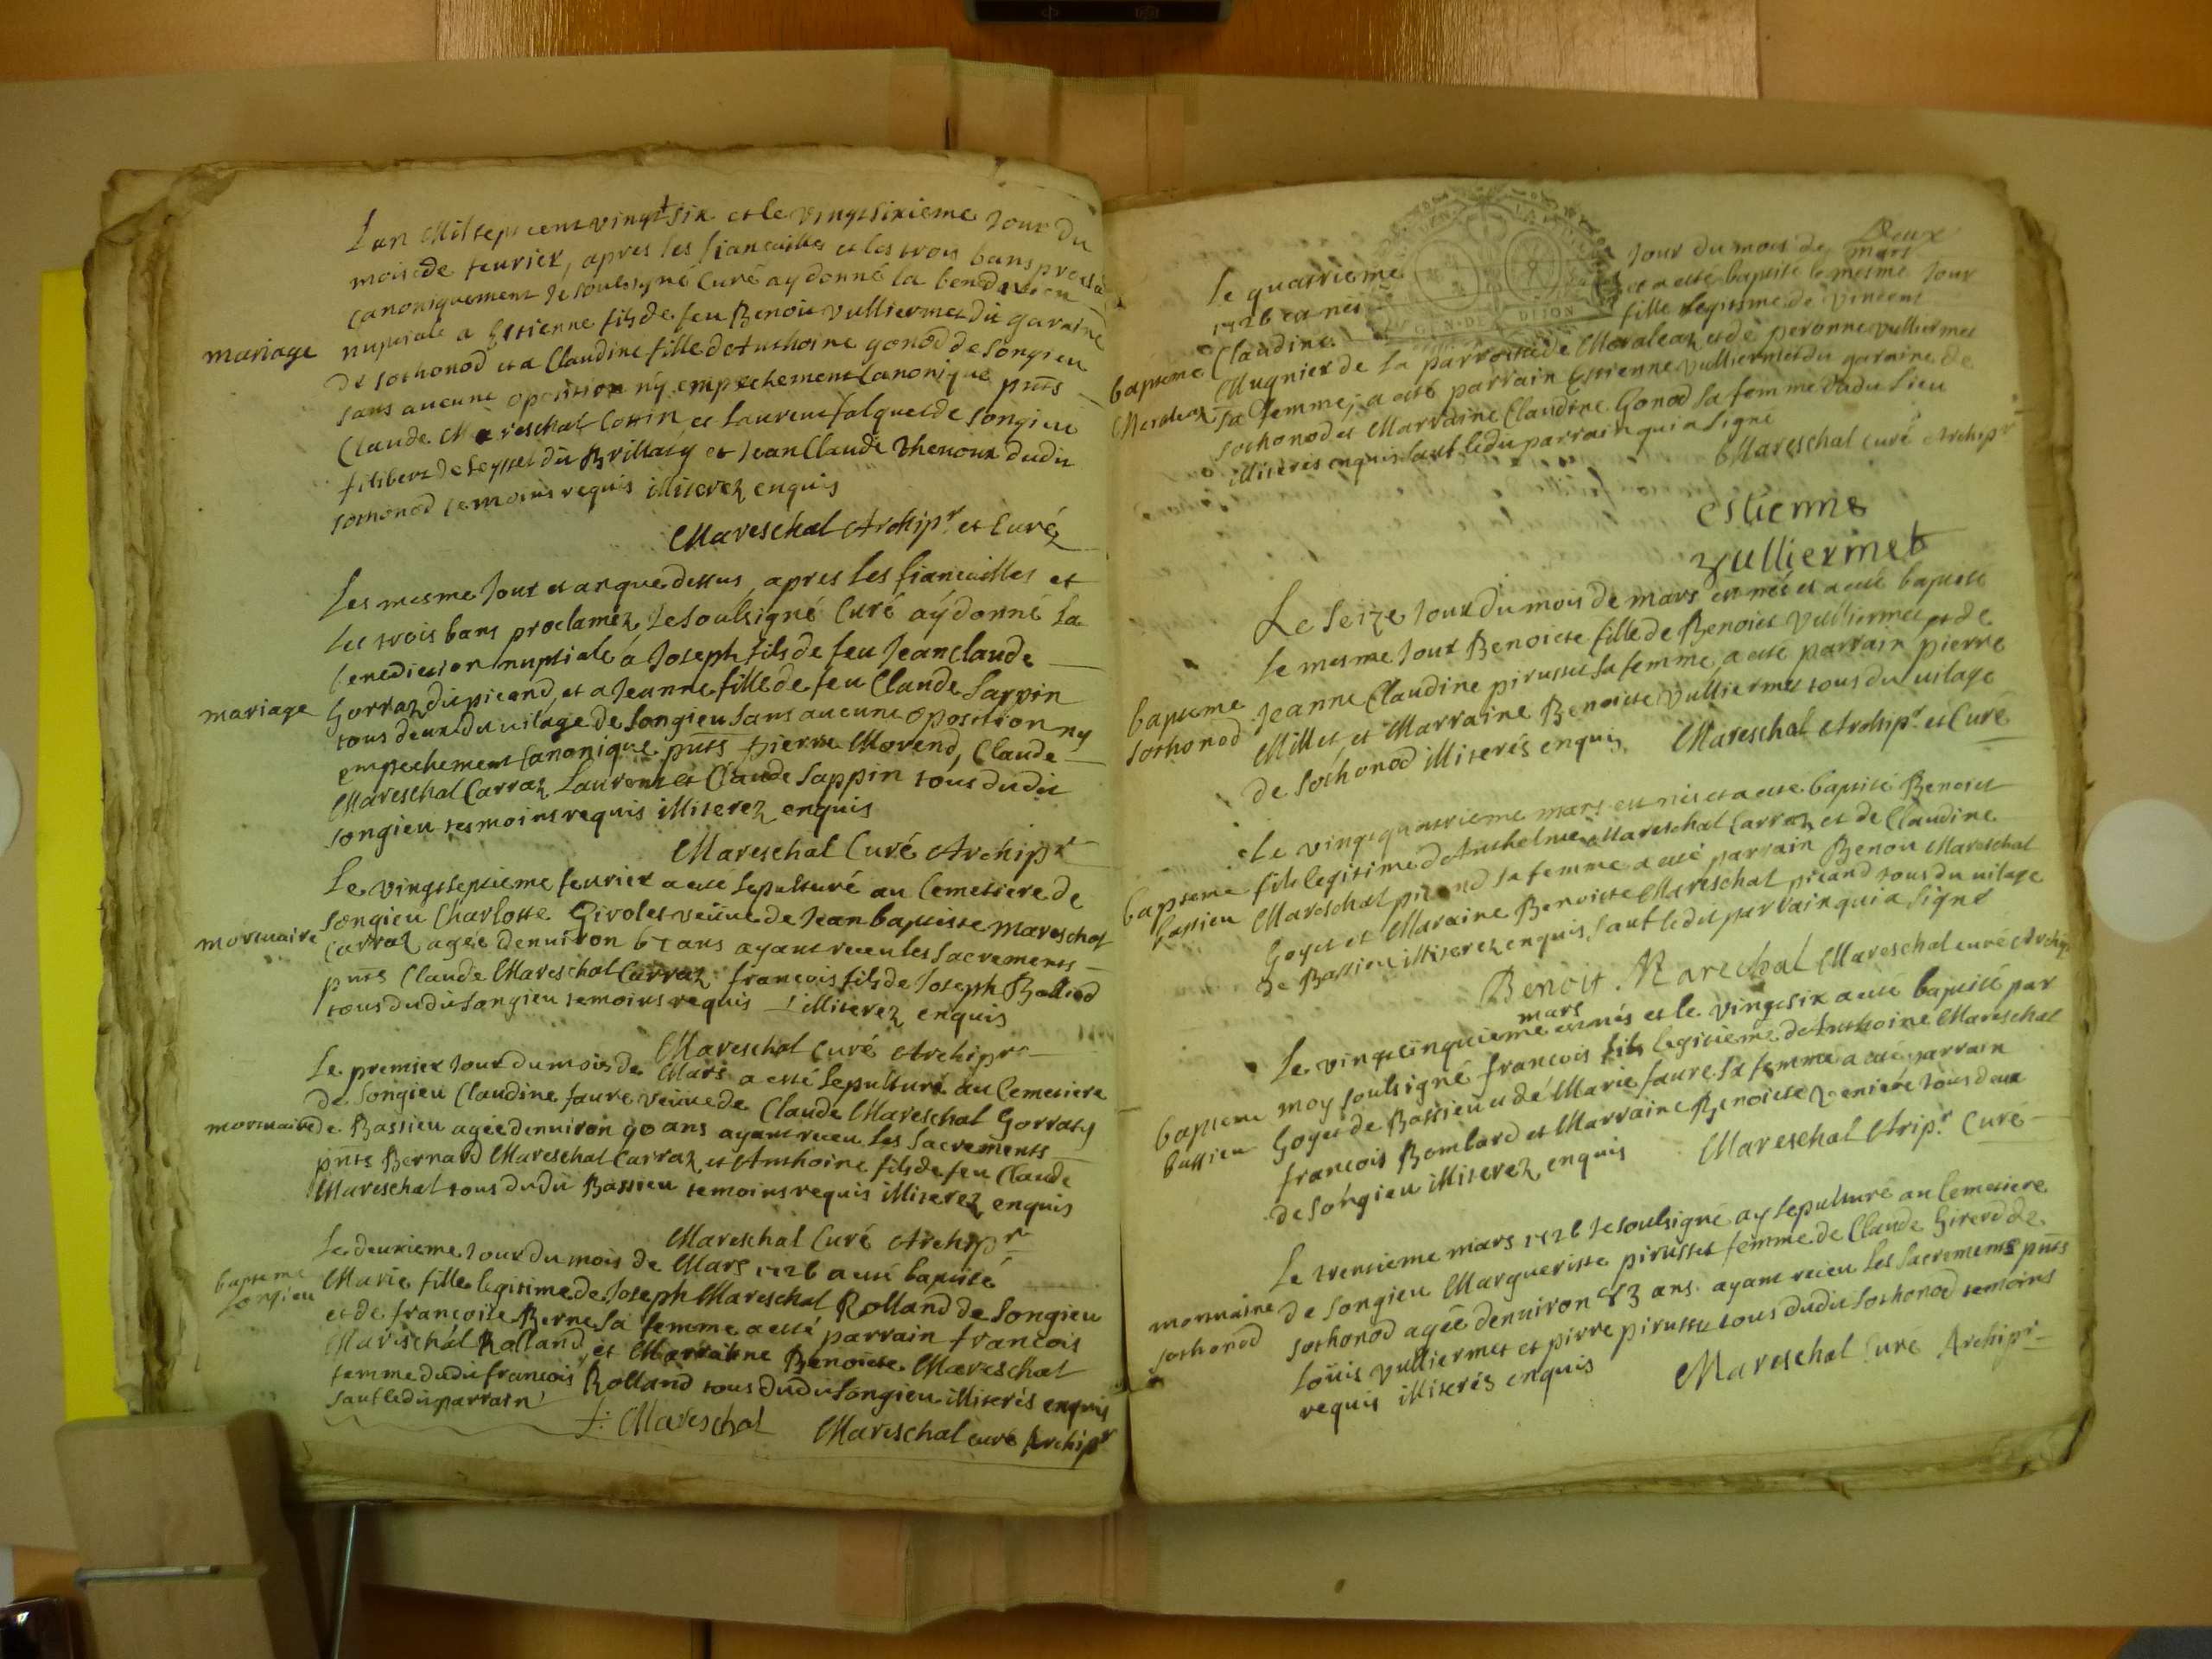 Lan Mil sept cent vingt six et le vingt sixieme Jour du
mois de feurier, apres les fiancailles et les trois bans
canoniquement Je soulsigné Curé ay donné la benediction
mariage
nuptiale a Estienne fils de feu Benoit vulliermet dit garaine
de sothonod et a Claudine fille de Anthoine gonod de Songieu
sans aucune oposition ny empechement Canonique pnts
Claude Mareschal Cottin et Laurent falquet de Songieu
filibert de Seyssel dit Brillaty et Jean Claude Thenoux dudit
sothonod temoins requis illiterez enquis
Mareschal Archipr et Curé
Les mesme Jour et an que dessus, apres les fiancailles et
les trois bans proclaméz, Je soulsigné Curé aÿ donné la
benediction nuptiale á Joseph fils de feu Jean claude
mariage
Gorraz dit picand, et a Jeanne fille de feu Claude Sappin
tous deux du uilage de Songieu sans aucune oposition ny
empechement Canonique pnts pierre Morend, Claude
Mareschal Carraz Laurent et Claude Sappin tous dudit
songieu tesmoins requis illiterez enquis
Mareschal Curé Archipr
Le vingt septieme feurier a eté sepulturé au Cemetiere de
mortuaire
songieu Charlotte Girolet veüue de Jean baptiste Mareschal
Carraz agée denuiron 67 ans ayant receu les Sacrements
pnts Claude Mareschal Carraz francois fils de Joseph Balliod
tous dudit Songieu temoins requis illiterez enquis
Mareschal Curé Archipr
Le premier Jour du mois de Mars a esté sepulturé au Cemetiere
de Songieu Claudine faure veuue de Claude Mareschal Gorraty
mortuaire
de Bassieu agée denuiron 90 ans ayant receu les Sacrements
pnts Bernard Mareschal Carraz et Anthoine fils de feu Claude
Mareschal tous dudit Bassieu temoins requis illiterez enquis
Mareschal Curé Archipr
Le deuxieme Jour du mois de Mars 1726 a eté baptisé
bapteme
songieu
Marie fille legitime de Joseph Mareschal Rolland de Songieu
et de francoise Berne sa femme a eté parrain francois
Mareschal Rolland et Marraine Benoiste Mareschal
femme dudit francois Rolland tous dudit Songieu illiterés enquis
sauf ledit parrain
f: Mareschal Mareschal curé Archipr
Deux
GEN. DE DIJON
Le quatrieme Jour du mois de mars
1726 ea nés et a eté baptisé le mesme Jour
Claudine fille legitime de Vincent
bapteme
Meraleaz
Mugnier de la parroisse de Meraleaz et de peronne vulliermet
sa femme, a eté parrain Estienne vulliermet dit garaine de
sothonod et Marraine Claudine Gonod sa femme dudit lieu
illiterés enquis sauf ledit parrain qui a signé
Mareschal curé Archipr
estienne
vulliermet
Le seize Jour du mois de mars est nés et a eté baptisé
le mesme Jour Benoicte fille de Benoict vulliermet et de
bapteme
sothonod
Jeanne Claudine pirusset sa femme a eté parrain pierre
Millet et Marraine Benoicte vulliermet tous du uilage
de Sothonod illiterés enquis Mareschal Archipr et Curé
Le vingt quatrieme mars est nés et a eté baptisé Benoict
bapteme
bassieu
fils legitime de Anthelme Mareschal Carraz et de Claudine
Mareschal picand sa femme a eté parrain Benoit Mareschal
Goyet et Maraine Benoiste Mareschal picand tous du uilage
de Bassieu illiterez enquis, sauf ledit parrain qui a signé
Benoit Marechal Mareschal curé Archip
mars
Le vingt cinquieme est nés et le vingt six a eté baptisé par
bapteme
bassieu
moy soulsigné francois fils legitieme de Anthoine Mareschal
Goyet de Bassieu et de Marie faure sa femme a eté parrain
francois Bombard et Marraine Benoicte veniere tous deux
de Songieu illiterez enquis Mareschal Arip.r Curé
Le trentieme mars 1726 Je soulsigné ay sepulturé au Cemetiere
mortuaire
sothonod
de Songieu Margueritte pirusset femme de Claude Girerd de
sothonod agée denuiron 83 ans. ayant receu les Sacrements pnts
Loüis vulliermet et pirre pirusset tous dudit Sothonod temoins
requis illiterés enquis Mareschal Cure Archipr